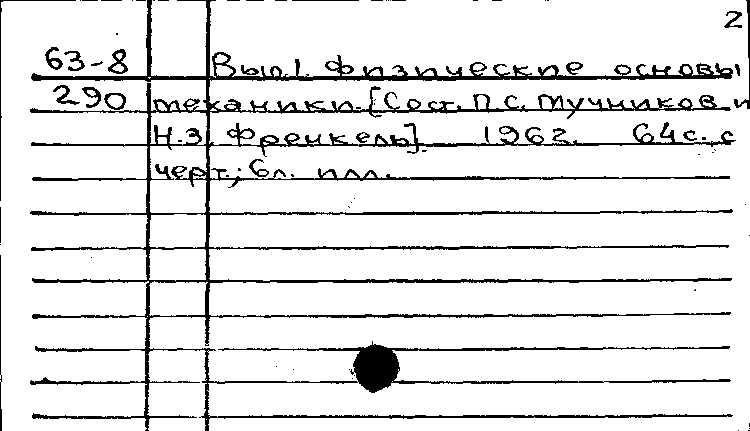 2
63-8 Вып.1. Физические основы
290 механики. [Сост. П.С. Мучников и
Н.З. Френкель]. 1962. 64с. с
черт.; 6л. илл.